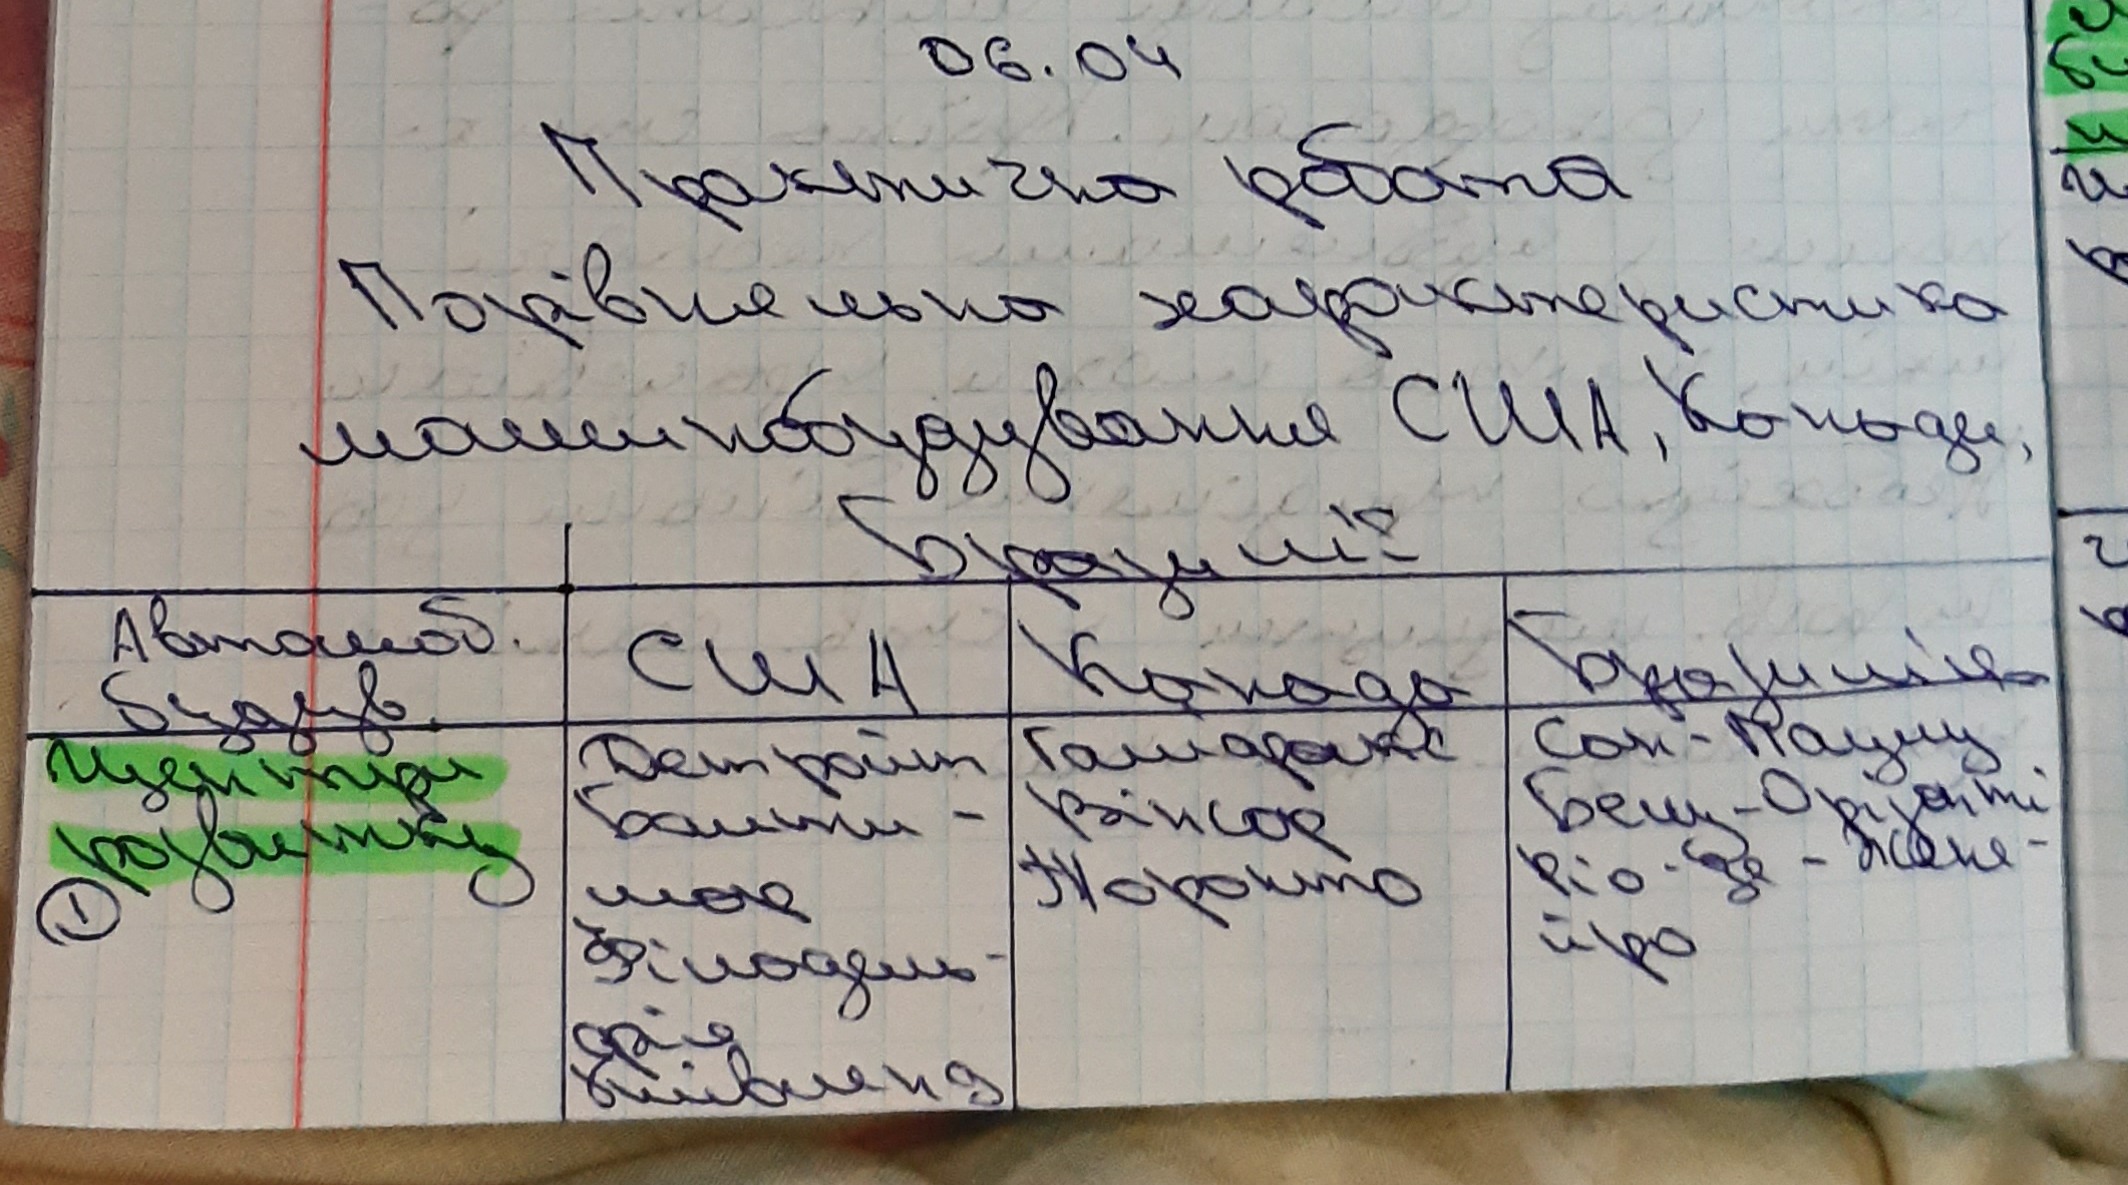 06.04
Практична робота
Порівняльна характеристика
машинобудування США, Канади,
Бразилії
Автомоб. будув.
США
Канада
Бразилія
Центри розвитку
①
Детройт
Балти-
мор
Філадель-
фія
Клівленд
Галіфакс
Вінсор
Торонто
Сан-Паулу
Белу-Оризонті
Ріо-де-Жане-
йро